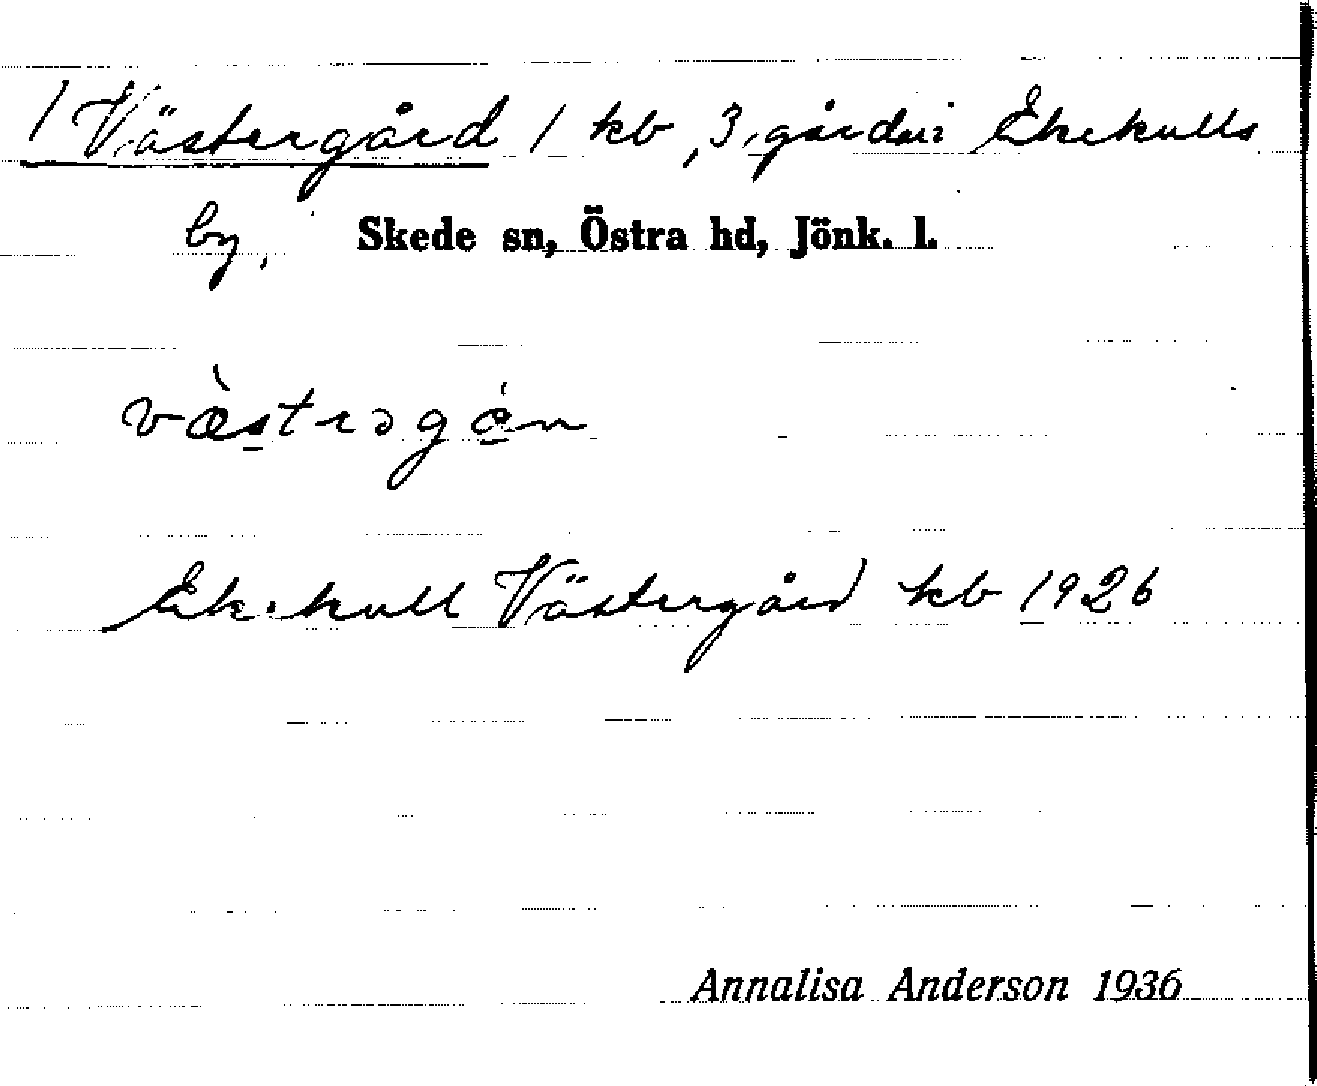 / Västergård / kb, 3, gårdar i Ekekulls
by, Skede sn, Östra hd, Jönk. l.
væ̀strəgɑ́n
Ekekull Västergård kb 1926
Annalisa Anderson 1936